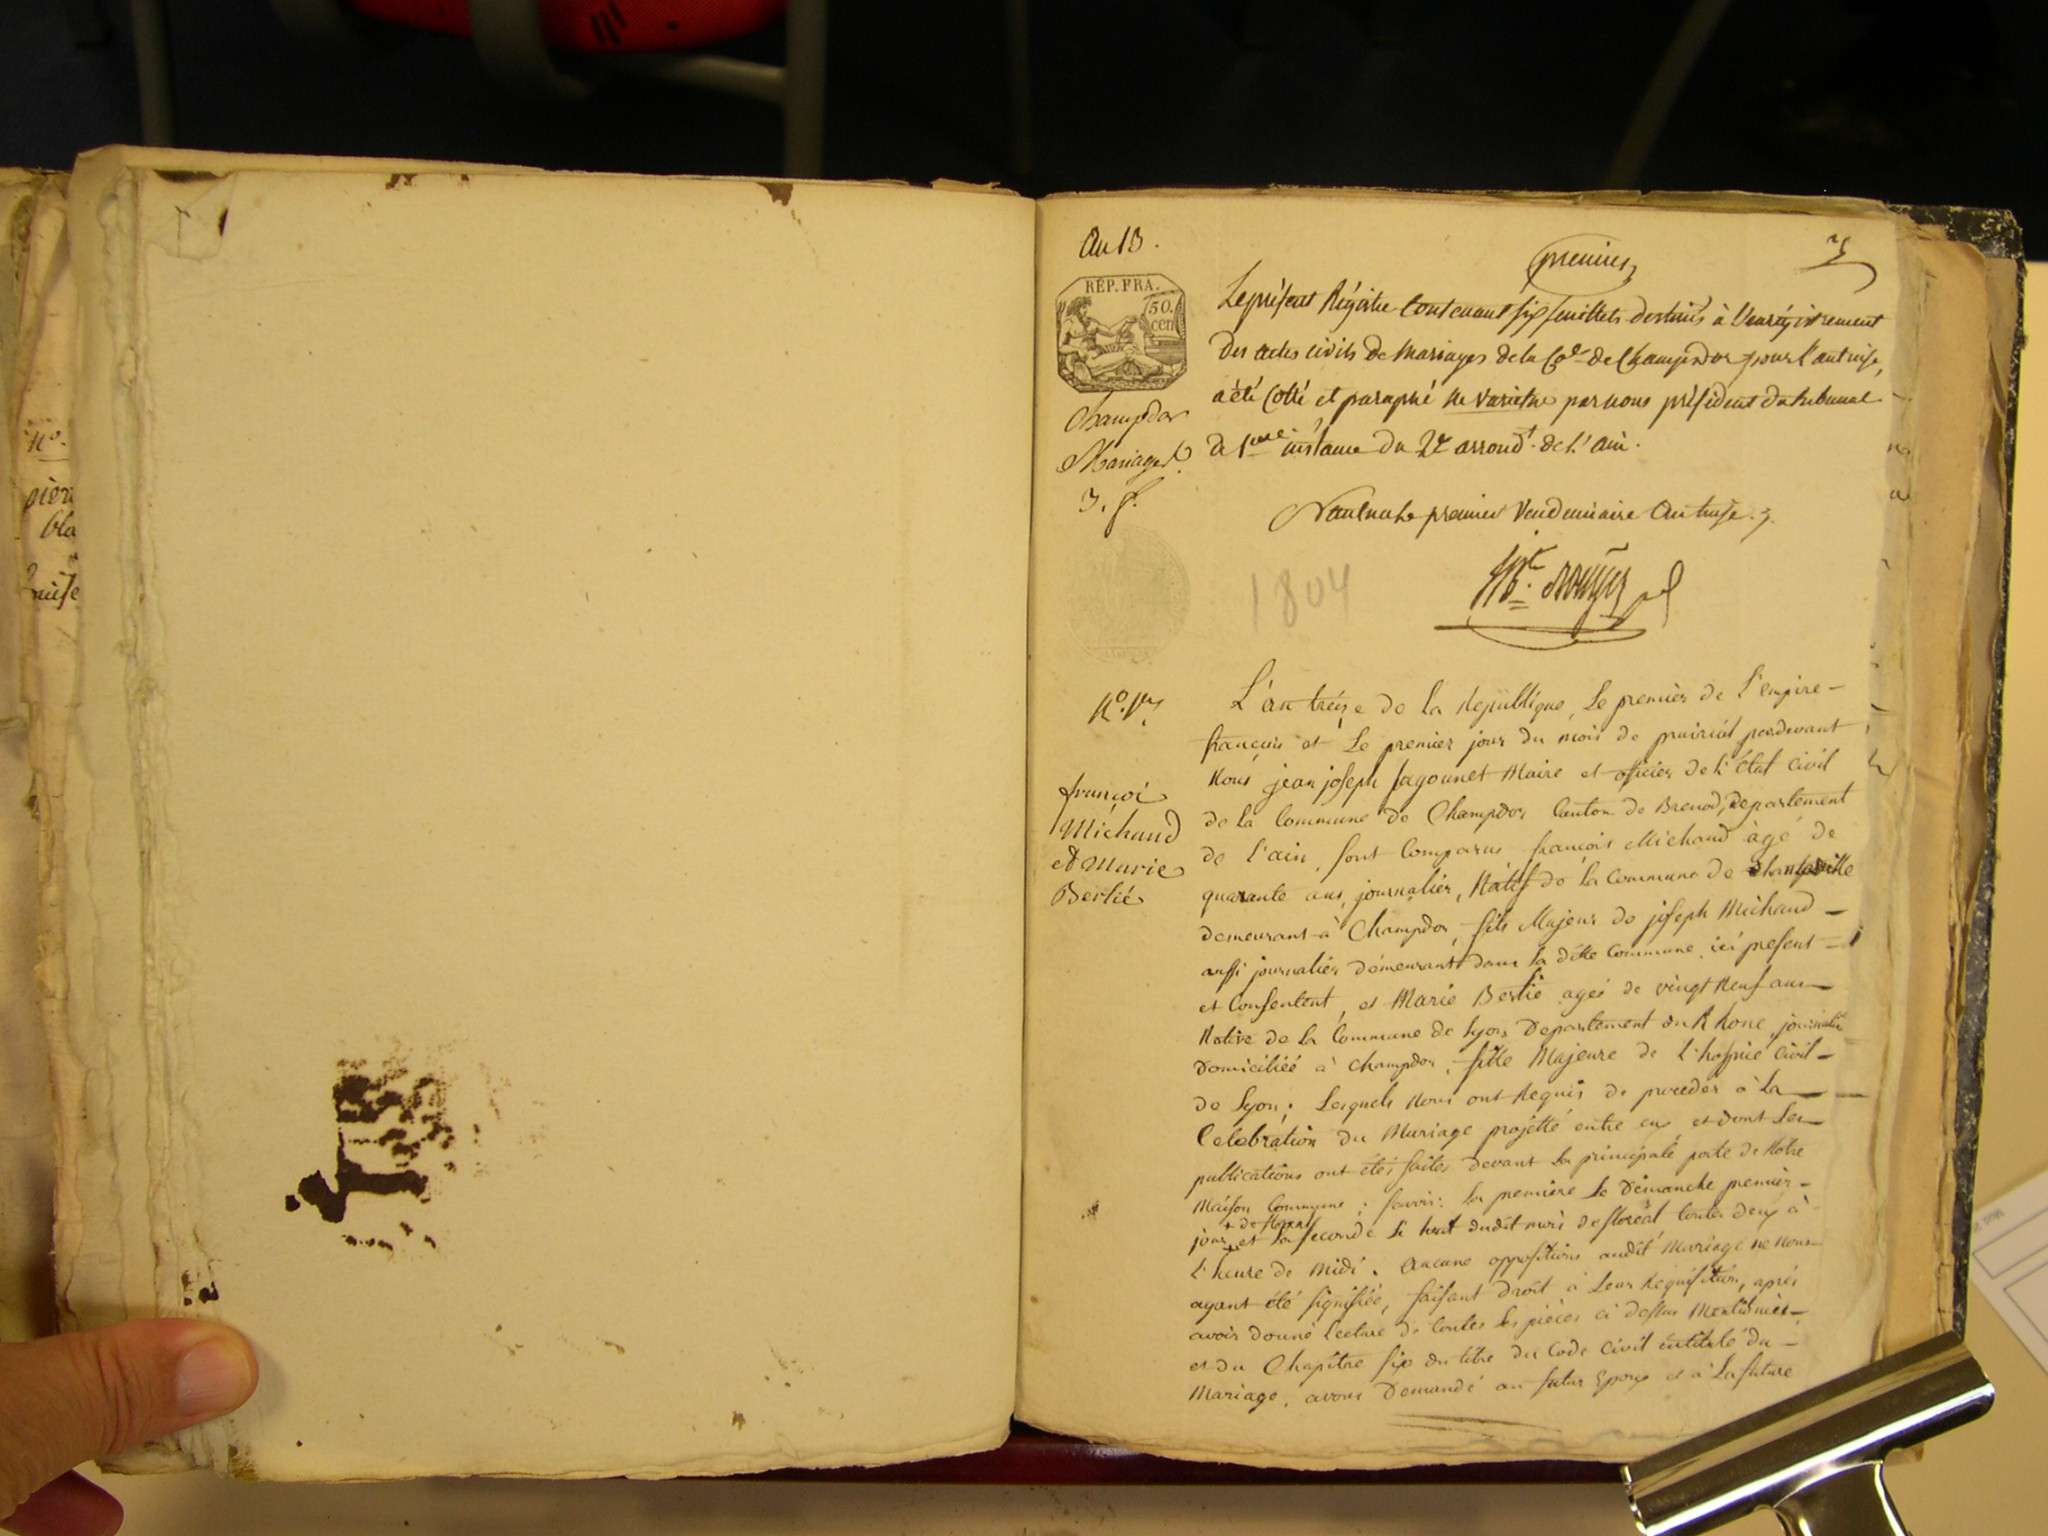 No.
pièr
bla
An 13.
premier
RÉP. FRA.
50.
cen
Champdor
Mariages
3. f.
Le présent Régistre Contenant six feuillets destinés à l'enrégistrement
des actes civils de Mariages de la Cne de Champdor pour l'an treize,
a été Cotté et paraphé ne varietur par nous président du tribunal
de 1ere instance du 2e arrondt. de l'ain.
Nantua le premier Vendemiaire An treize.
1804
No. 1er
françois
Michaud
et Marie
Berlié
L'an treize de la République, Le premier de L'empire
francois et Le premier jour du mois de prairial pardevant
Nous jean joseph Jagounet Maire et officier de l'État Civil
de La Commune de Champdor Canton de Brenod, Departement
de L'ain, sont Comparus francois Michaud àgé de
quarante ans, journalier, Natif de la Commune de
demeurant à Champdor, fils Majeur de joseph Michaud
aussi journalier démeurant dans la ditte Commune, ici present
et Consentent, et Marie Berlié ageé de vingt Neuf ans
Native de La Commune de Lyon Departement du Rhone, journaliere
Domiciliéé à Champdor, fille Majeure de L'hospice Civil
de Lyon; Lesquels Nous ont Requis de procéder à La
Célébration du Mariage projetté entre eux et dont Les
publications ont étés faites devant La principale porte de Notre
Maison Commune; savoir: La premiere Le Dimanche premier
+ de floreal
jour + et La seconde Le huit dudit mois de floréal toutes deux à
L'heure de Midi. Aucune opposition audit Mariage ne Nous
ayant été signifiée, faisant droit à Leur Requisition, après
avoir donné Lecture de toutes Les pièces ci dessus Mentionnées
et du Chapître six du titre du Code Civil intitulé du
Mariage, avons Demandé au futur Epoux et à La future